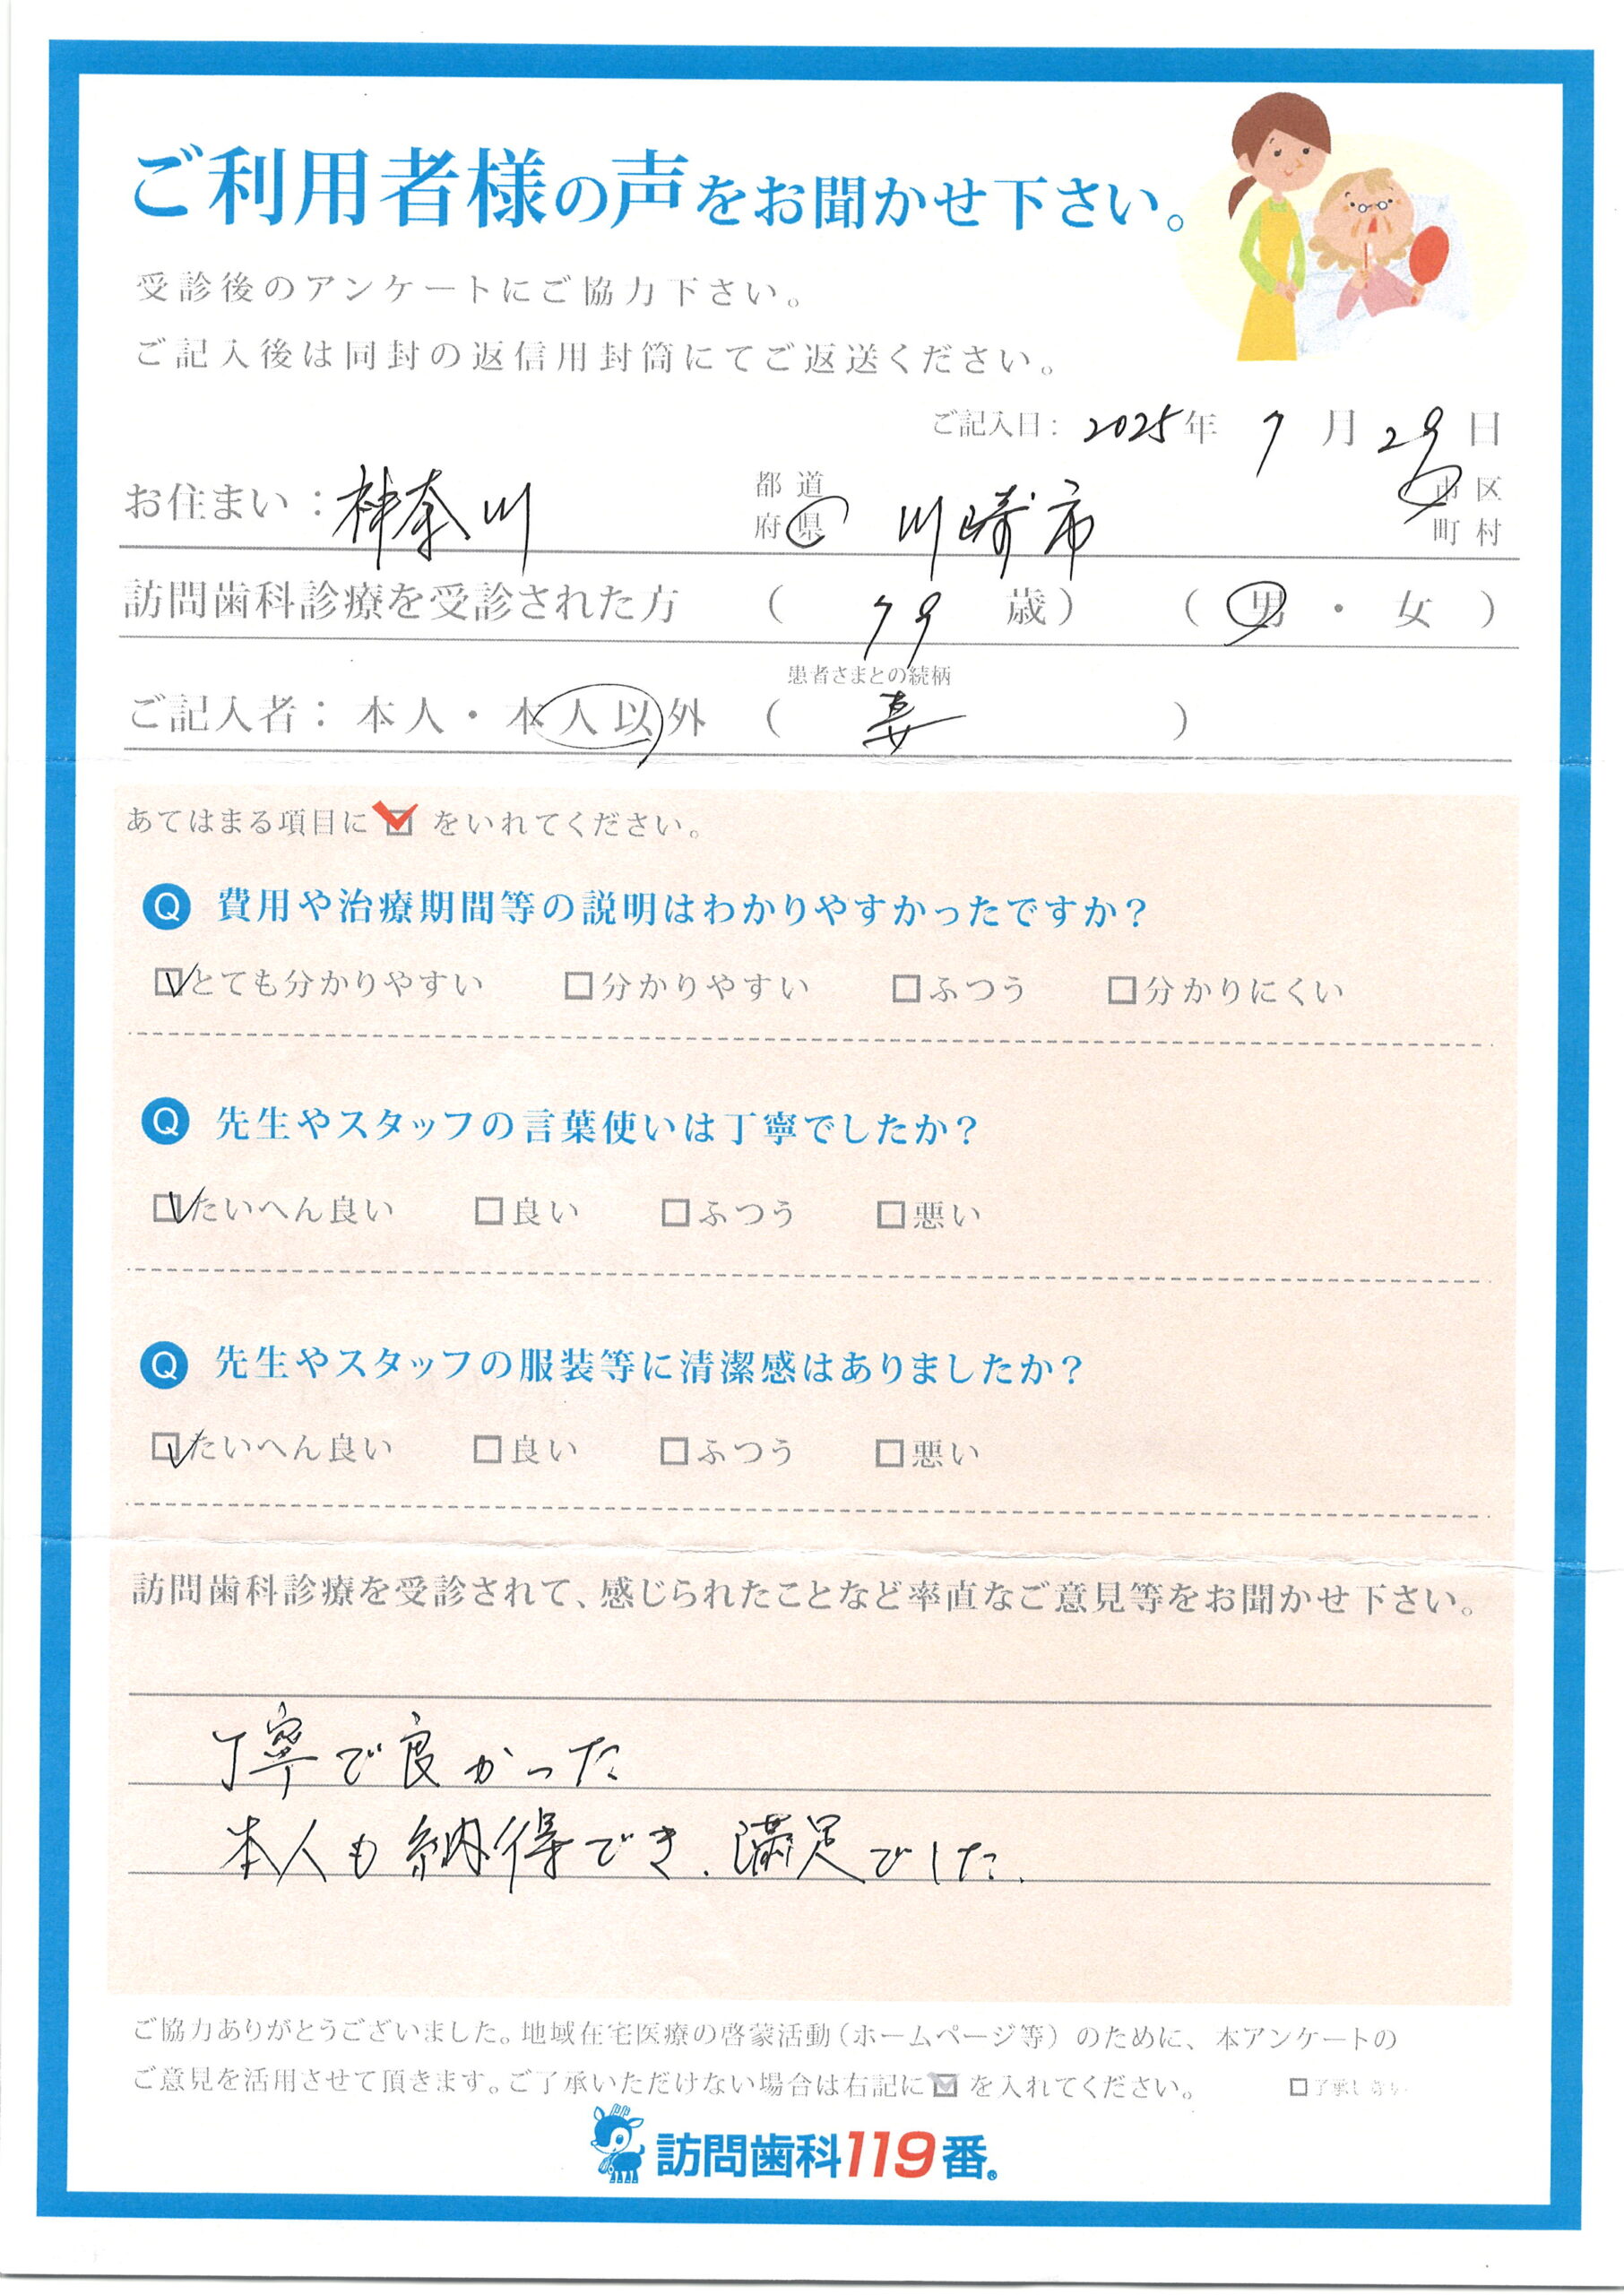 ご利用者様の声をお聞かせ下さい。
受診後のアンケートにご協力下さい。
ご記入後は同封の返信用封筒にてご返送ください。
ご記入日: 2025年 7月 29日
お住まい:神奈川 都道府県 川崎市 市区町村
訪問歯科診療を受診された方 ( 79 歳) ( 男・女 )
患者さまとの続柄
ご記入者:本人・本人以外 ( 妻 )
あてはまる項目に を いれてください。
Q 費用や治療期間等の説明はわかりやすかったですか?
☑とても分かりやすい □分かりやすい □ふつう □分かりにくい
Q 先生やスタッフの言葉使いは丁寧でしたか?
☑たいへん良い □良い □ふつう □悪い
Q 先生やスタッフの服装等に清潔感はありましたか?
☑たいへん良い □良い □ふつう □悪い
訪問歯科診療を受診されて、感じられたことなど率直なご意見等をお聞かせ下さい。
丁寧で良かった
本人も納得でき、満足でした。
ご協力ありがとうございました。地域在宅医療の啓蒙活動(ホームページ等)のために、本アンケートの
ご意見を活用させて頂きます。ご了承いただけない場合は右記に☑を入れてください。 □了承しない
訪問歯科119番®